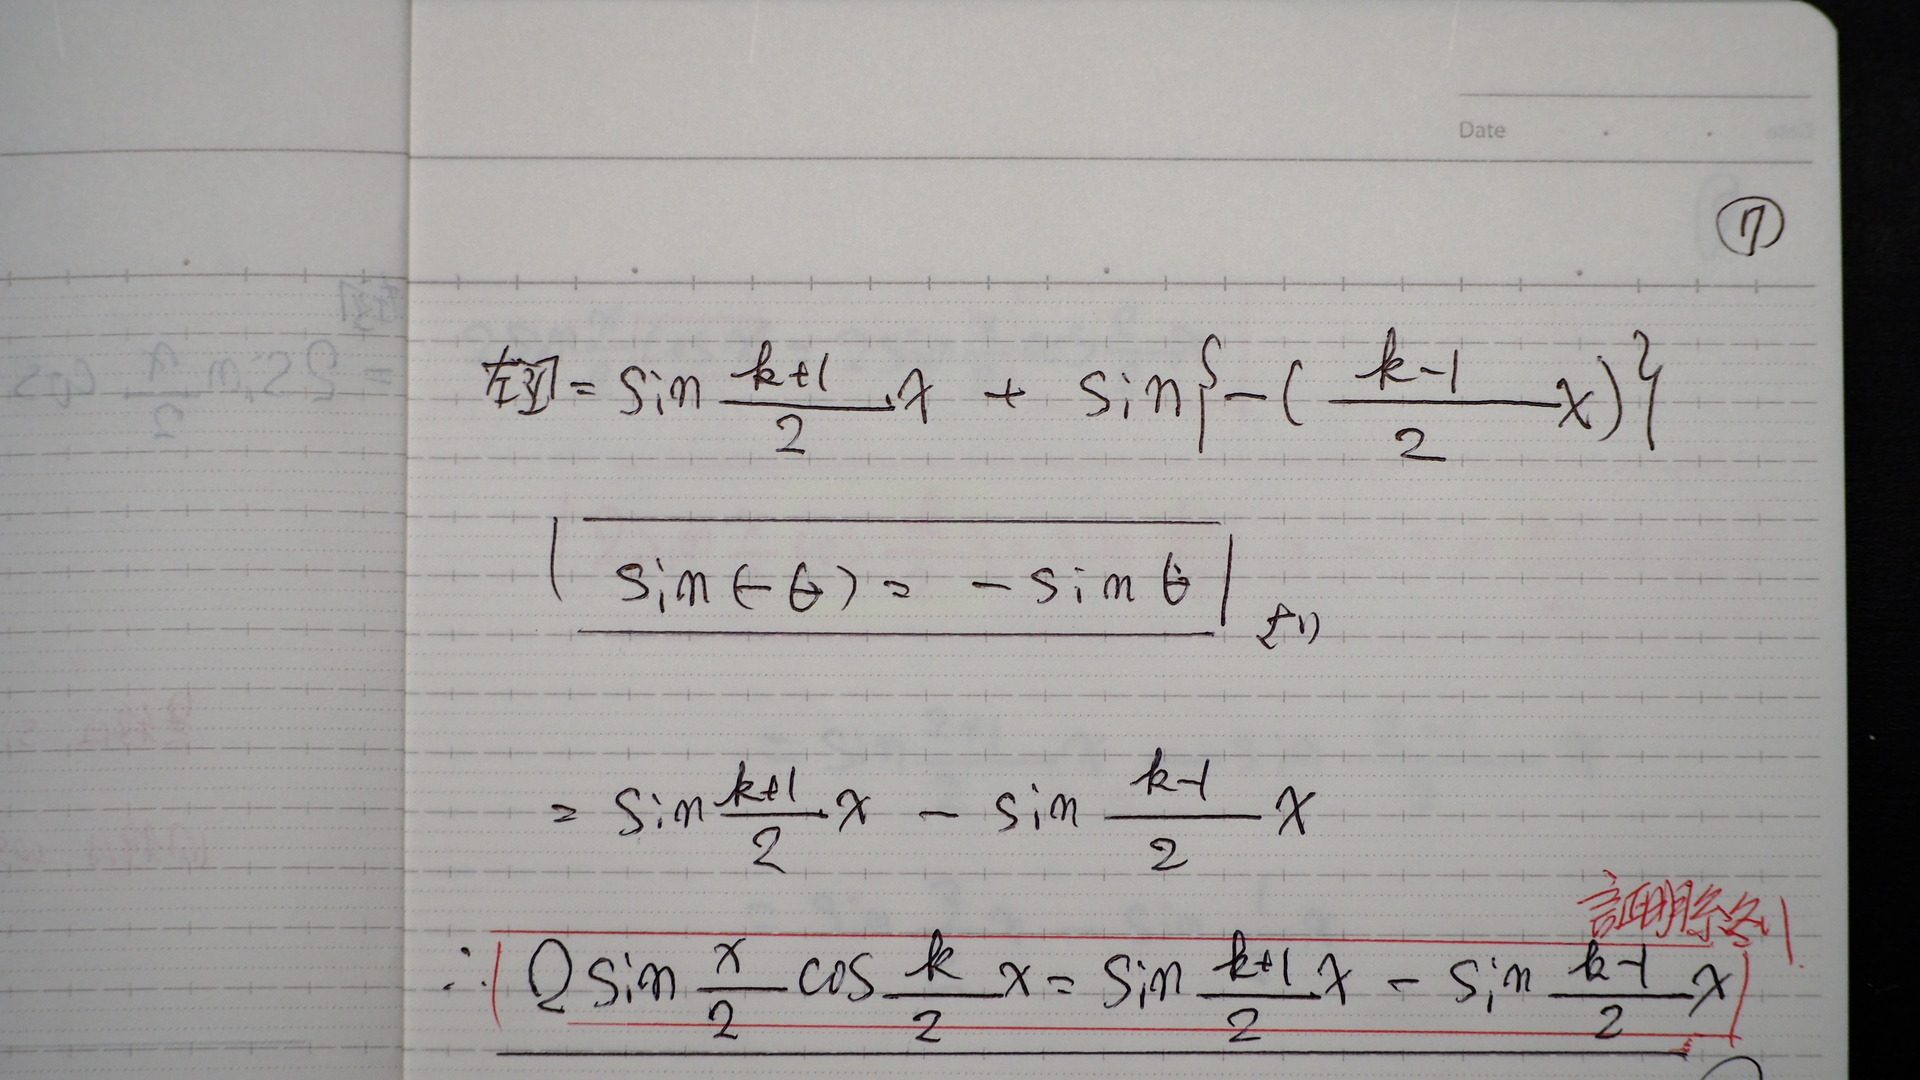 Date
⑦
左辺 = sin (k+1)/2 x + sin{-((k-1)/2 x)}
sin(-θ) = -sinθ より
= sin (k+1)/2 x - sin (k-1)/2 x
証明終
∴ 2 sin x/2 cos k/2 x = sin (k+1)/2 x - sin (k-1)/2 x